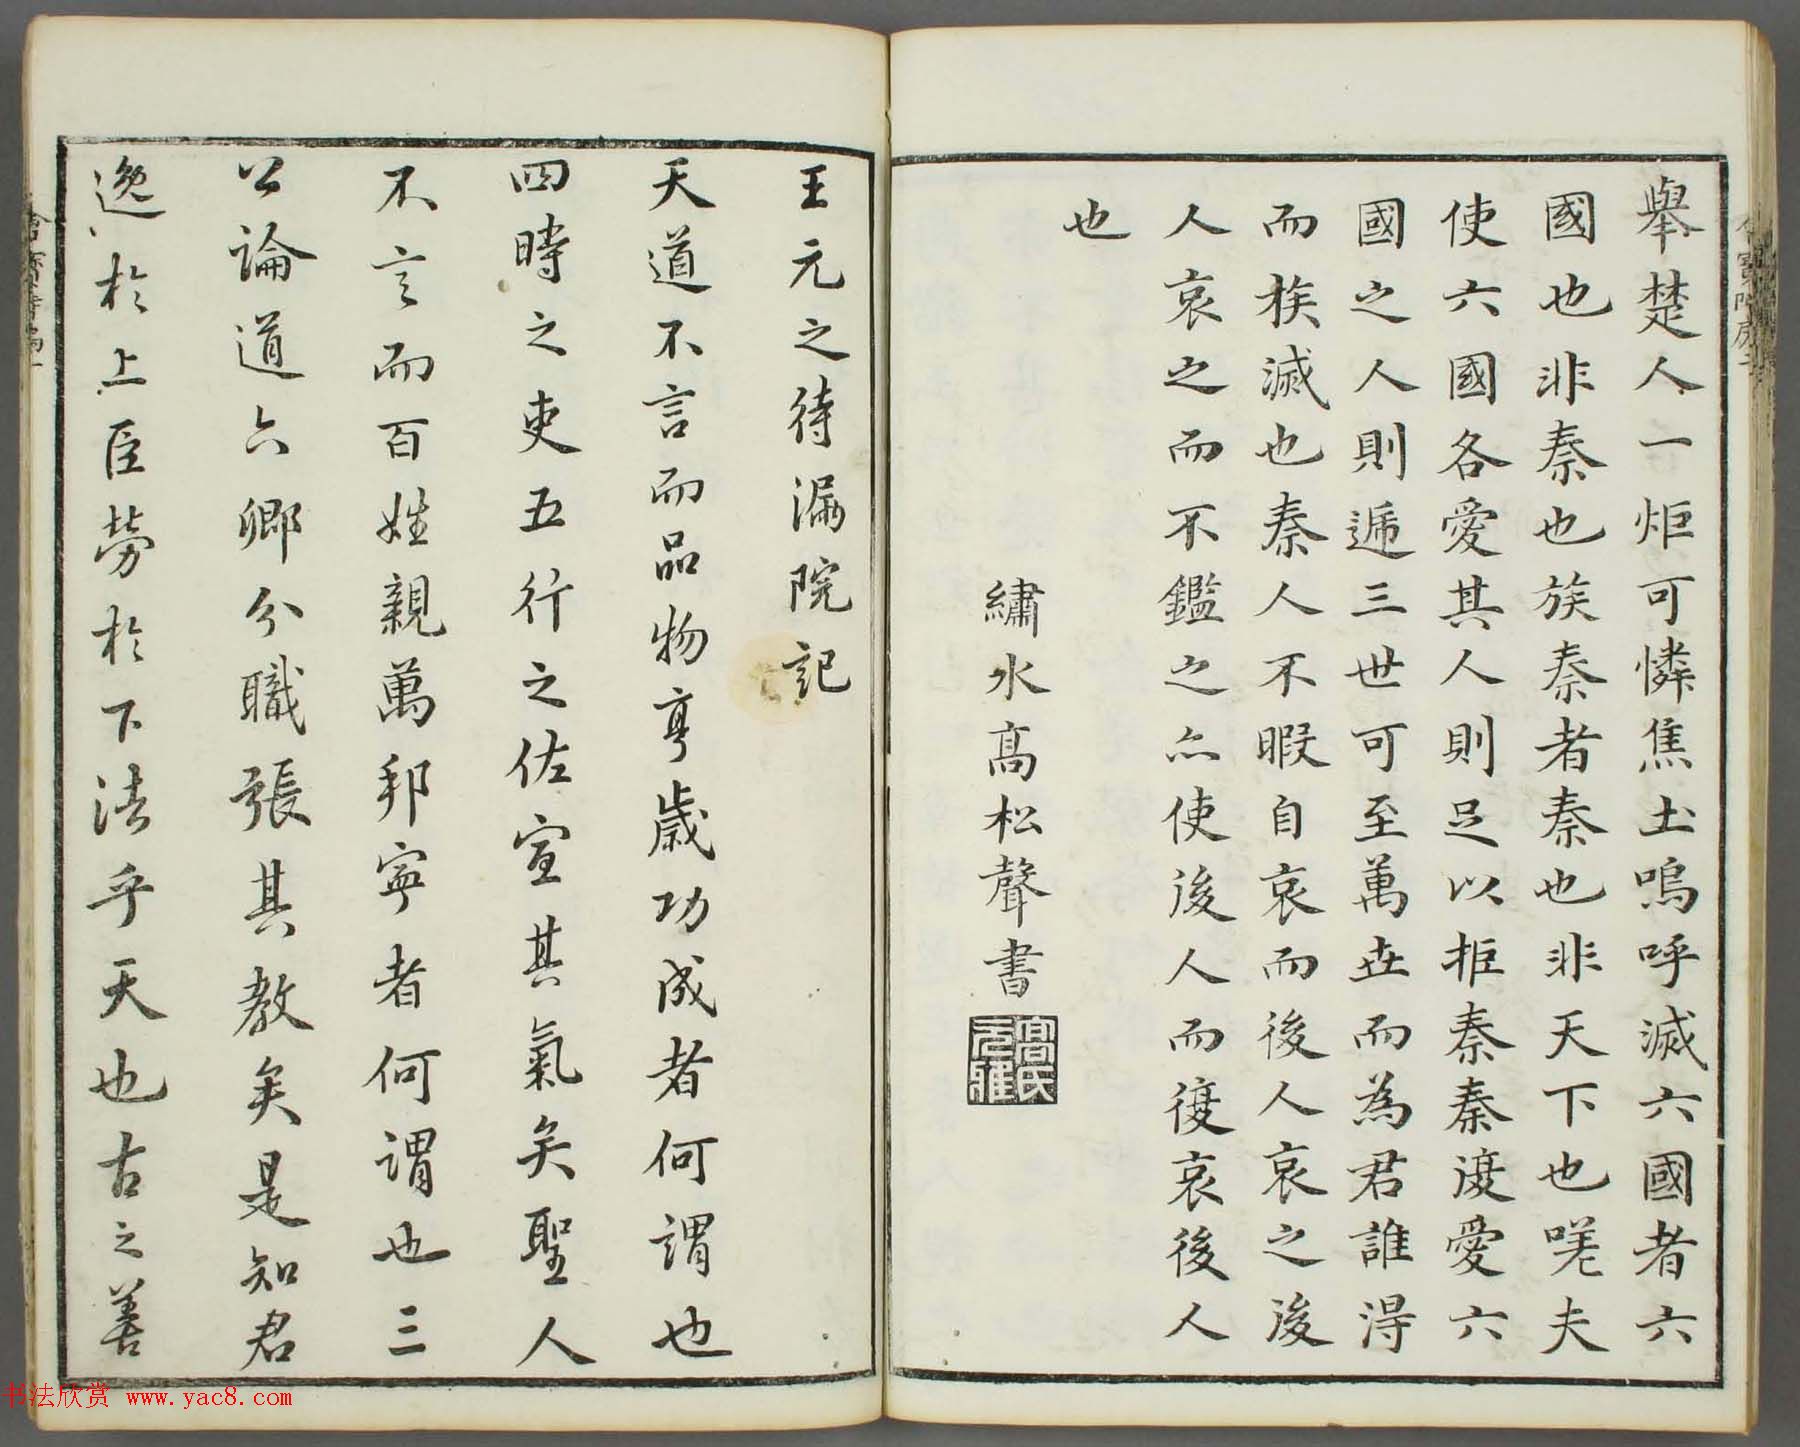 舉楚人一炬可憐焦土嗚呼滅六國者六
國也非秦也族秦者秦也非天下也嗟夫
使六國各愛其人則足以拒秦秦復愛六
國之人則遞三世可至萬世而為君誰得
而族滅也秦人不暇自哀而後人哀之後
人哀之而不鑑之亦使後人而復哀後人
也
繡水高松聲書
高氏
王元之待漏院記
天道不言而品物亨歲功成者何謂也
四時之吏五行之佐宣其氣矣聖人
不言而百姓親萬邦寧者何謂也三
公論道六卿分職張其教矣是知君
逸於上臣勞於下法乎天也古之善
书法欣赏 www.yac8.com